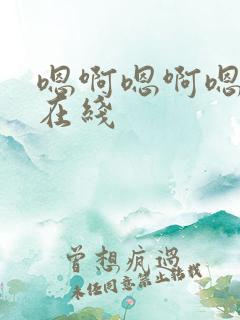 嗯啊嗯啊嗯
在线
曾想疯过
未经同意禁止转载